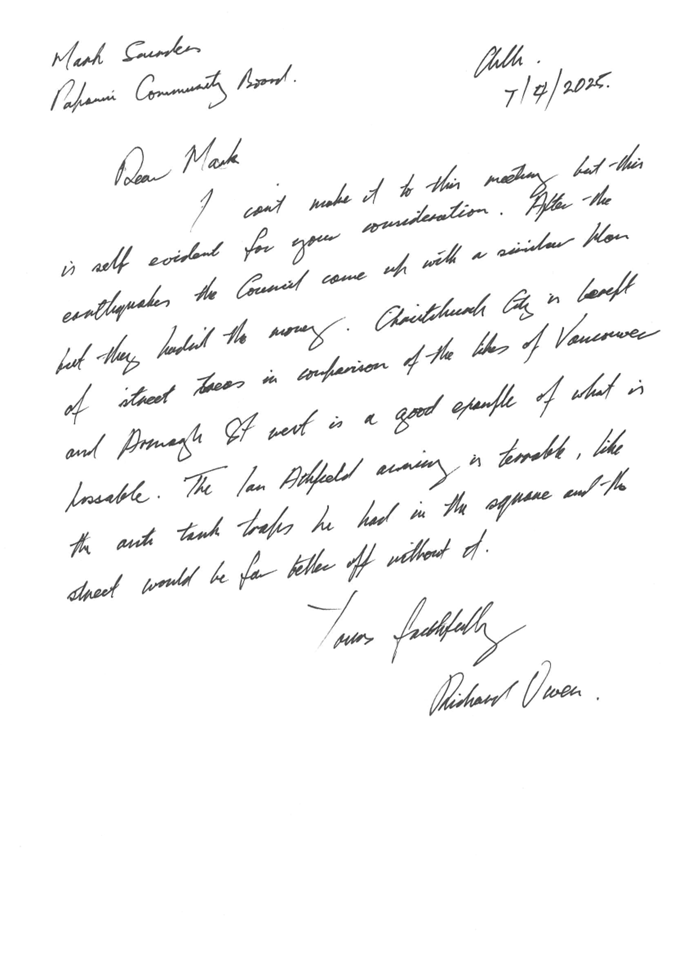 Mark Saunders
Papanui Community Board.
Chch.
7/4/2025.
Dear Mark
I can't make it to this meeting but this
is self evident for your consideration. After the
earthquakes the Council came up with a similar plan
but they hadn't the money. Christchurch City is bereft
of street trees in comparison of the likes of Vancouver
and Armagh St west is a good example of what is
possable. The Ian Athfield awning is terrable, like
the anti tank traps he had in the square and the
street would be far better off without it.
Yours faithfully
Richard Owen.